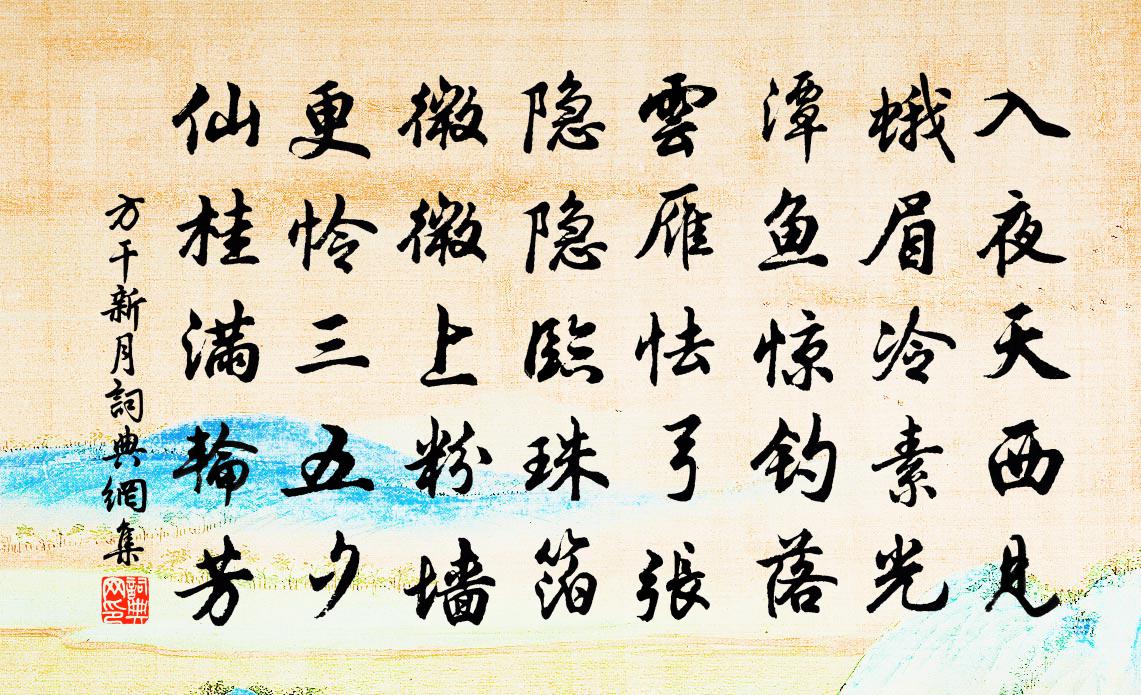 入夜天西見
蛾眉冷素光
潭鱼惊钓落
雲雁怯弓張
隐隐臨珠箔
微微上粉墙
更怜三五夕
仙桂满輪芳
方干新月詞典網集
詞典網印